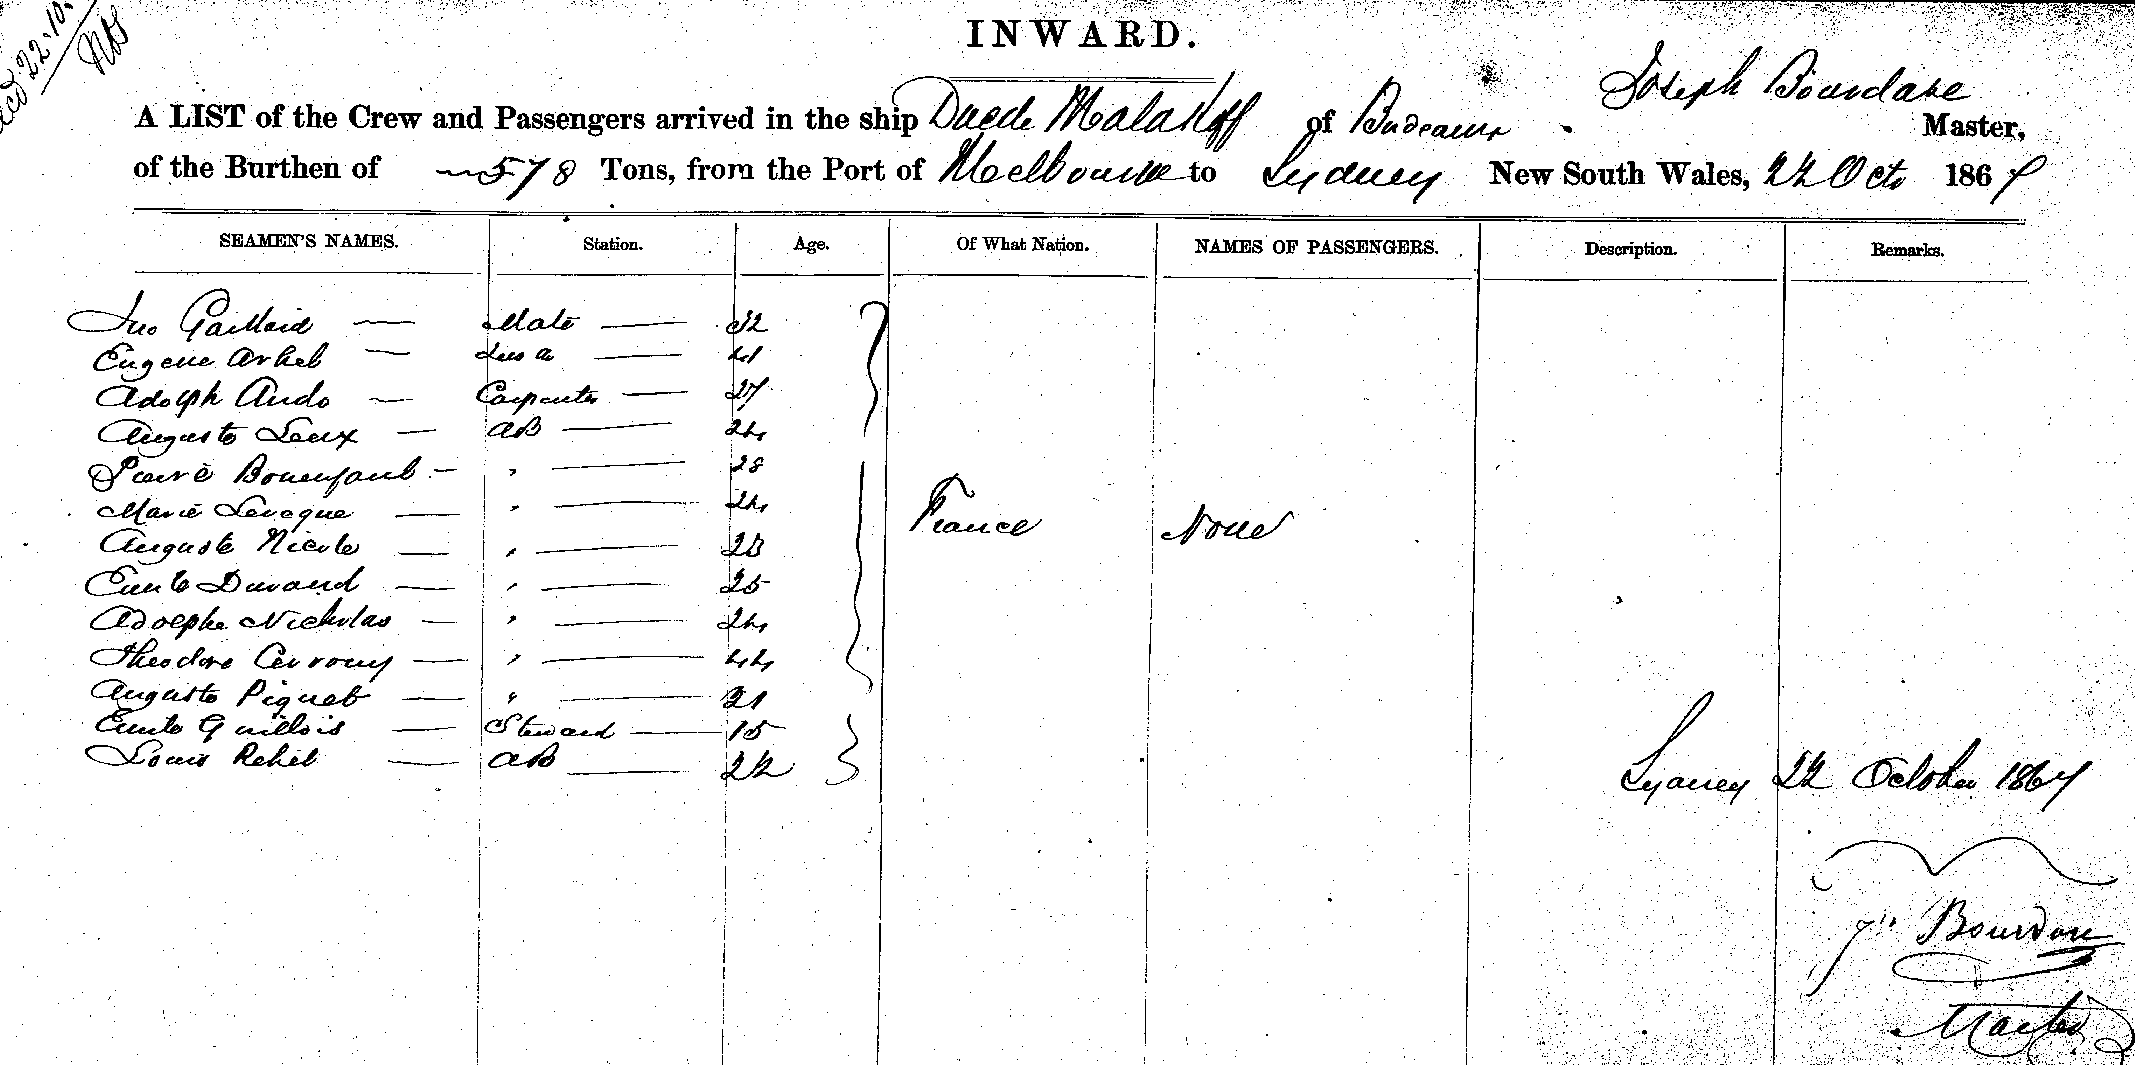 22.10.
INWARD.
Joseph Bourdase
A LIST of the Crew and Passengers arrived in the ship Duc de Malakoff of Budeaux Master,
of the Burthen of 578 Tons, from the Port of Melbourne to Sydney New South Wales, 22 Octr 1867
SEAMEN'S NAMES. Station. Age. Of What Nation. NAMES OF PASSENGERS. Description. Remarks.
Jno Gaillard — Mate — 32
Eugene Arhel — — 41
Adolph Audo — Carpenter — 27
Auguste Leux — AB — 24
Pierre Bonenfant — " — 28
Marie Leveque — " — 24
France None
Auguste Nicole — " — 28
Emile Durand — " — 25
Adolphe Nicholas — " — 24
Theodore — " — 44
Auguste Piquet — " — 21
Emile Guillois — Steward — 15
Louis Rehel — AB — 22
Sydney 22 October 1867
Bourdase
Master